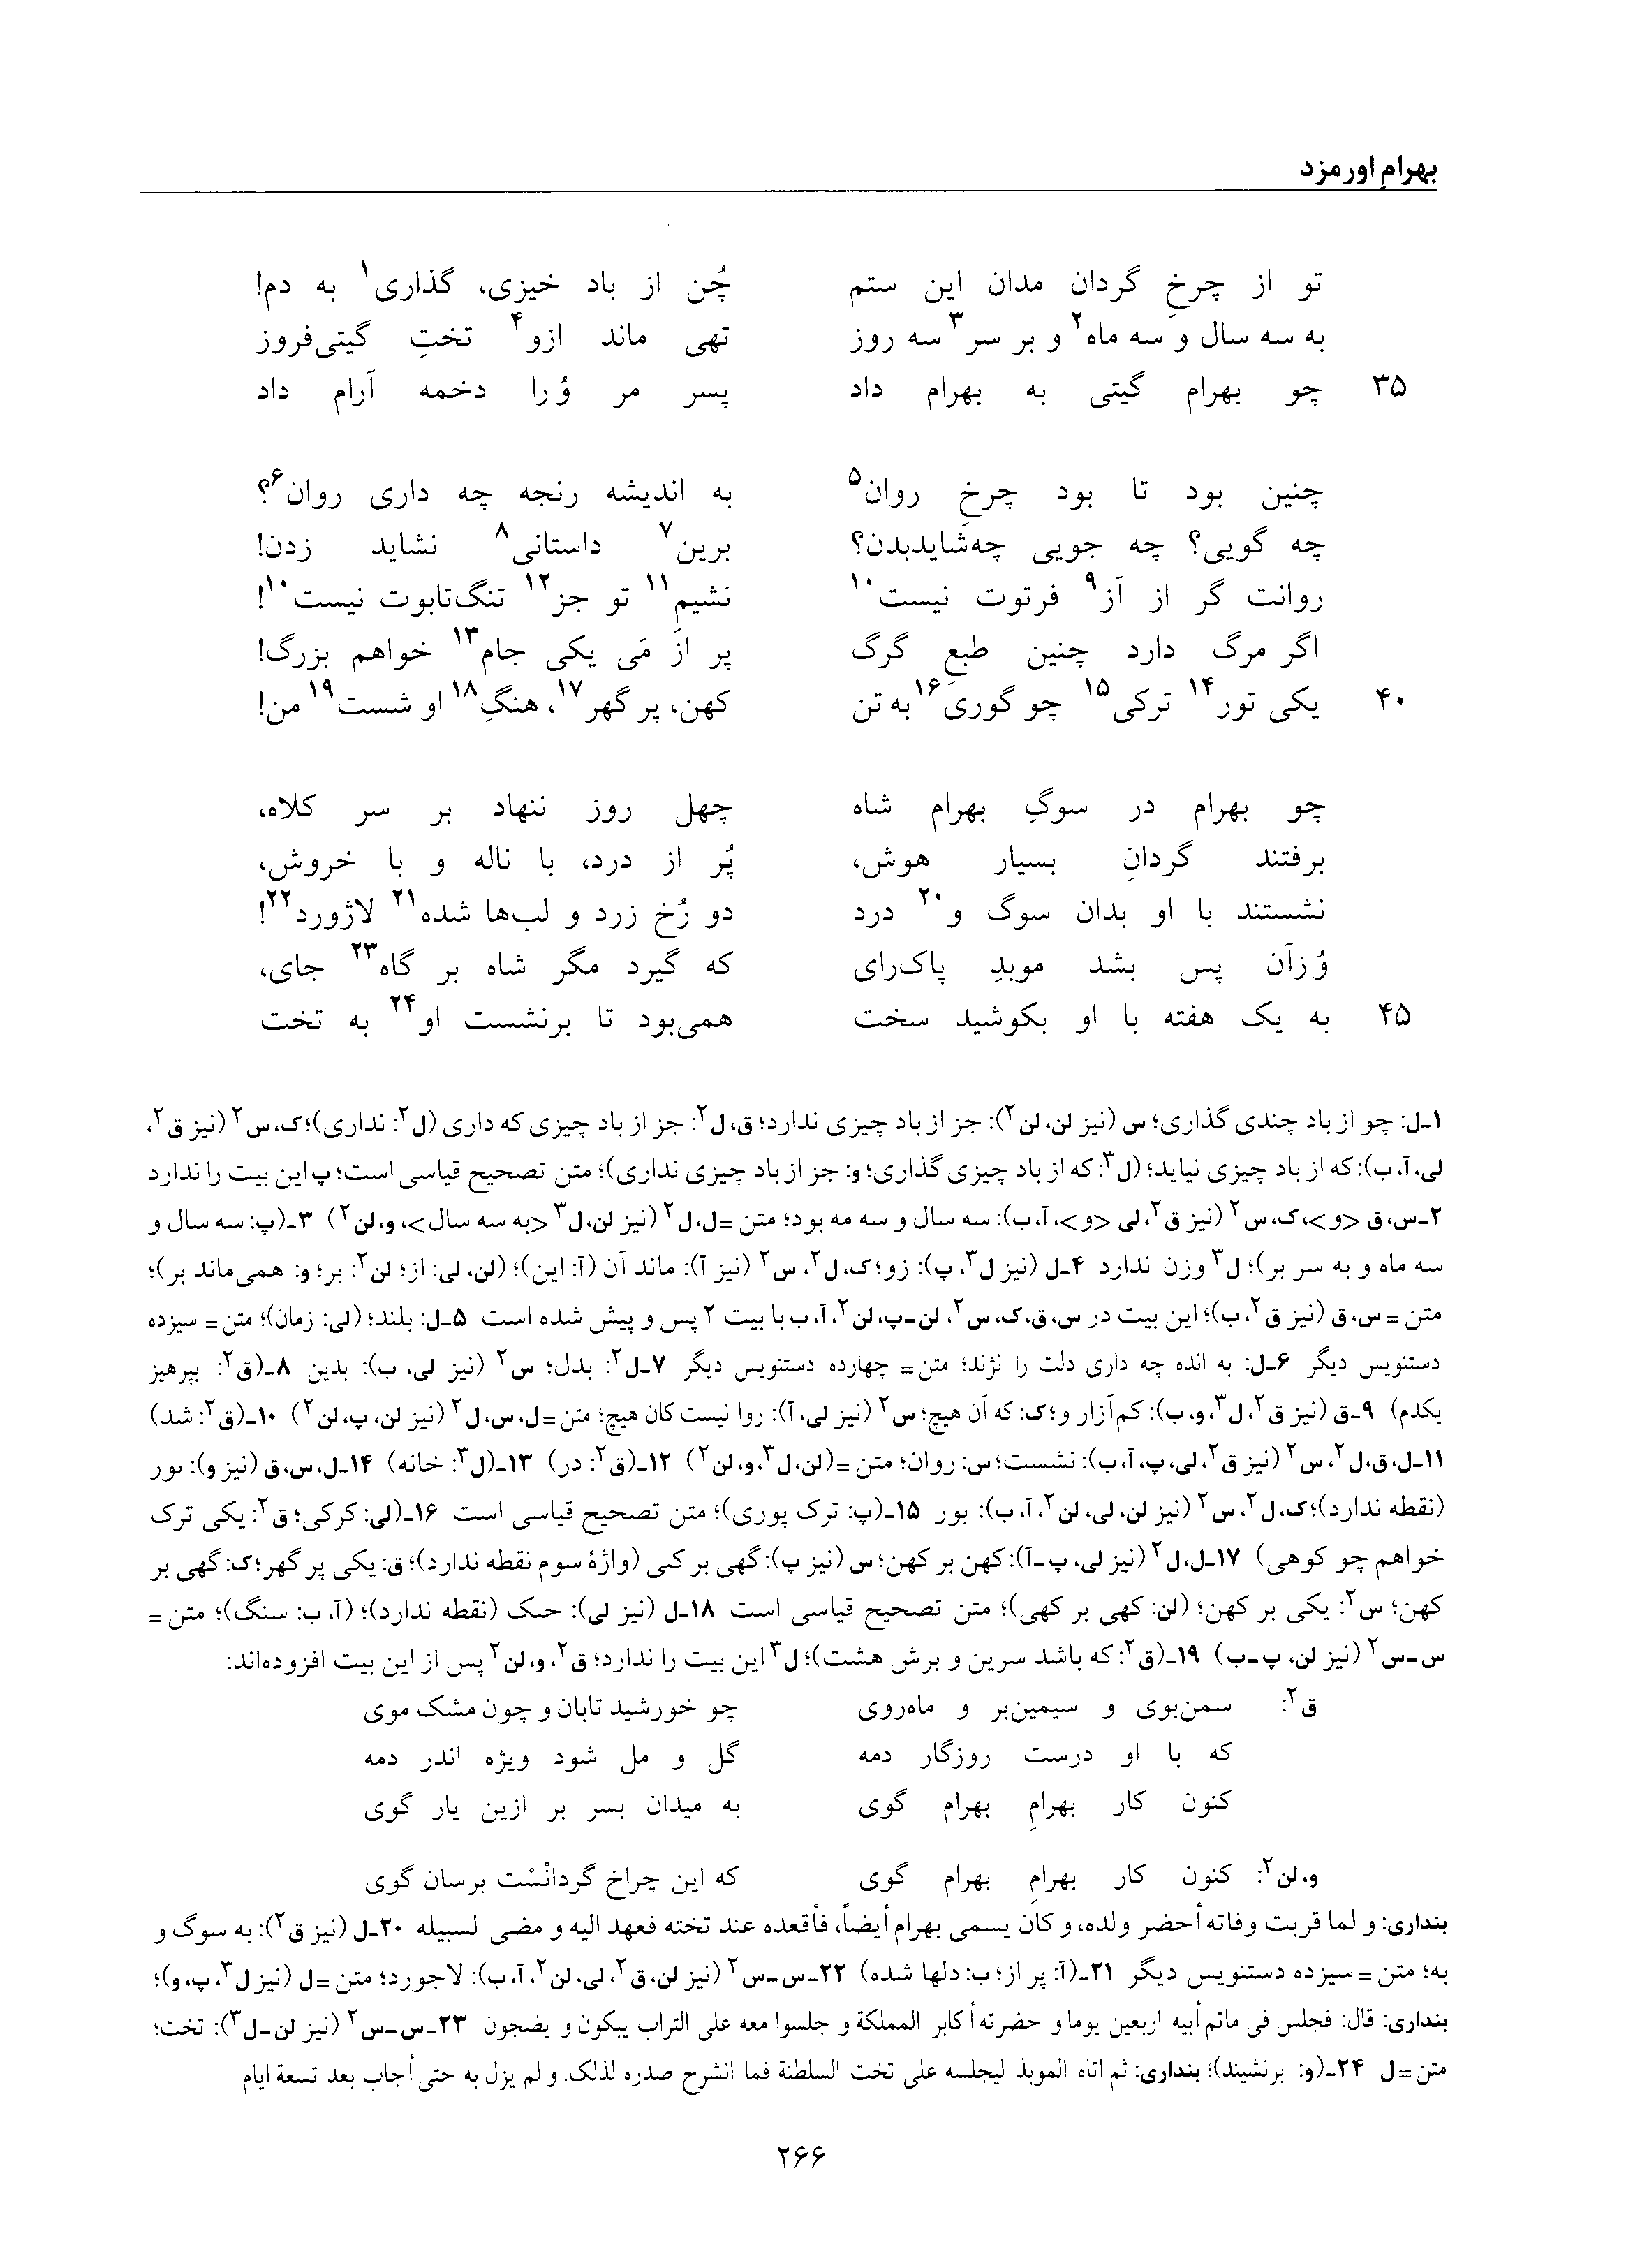 بهرامِ اورمزد
تو از چرخِ گردان مدان این ستم چُن از باد خیزی، گذاری۱ به دم!
به سه سال و سه ماه۲ و بر سر۳ سه روز تهی ماند ازو۴ تختِ گیتی‌فروز
۳۵ چو بهرام گیتی به بهرام داد پسر مر وُرا دخمه آرام داد
چنین بود تا بود چرخِ روان۵ به اندیشه رنجه چه داری روان۶؟
چه گویی؟ چه جویی چه‌شایدبدن؟ برین۷ داستانی۸ نشاید زدن!
روانت گر از آز۹ فرتوت نیست۱۰ نشیمِ۱۱ تو جز۱۲ تنگ‌تابوت نیست۱۰!
اگر مرگ دارد چنین طبعِ گرگ پر از مَی یکی جام۱۳ خواهم بزرگ!
۴۰ یکی تور۱۴ ترکی۱۵ چو گوری۱۶ به تن کهن، پر گهر۱۷، هنگِ۱۸ او شست۱۹ من!
چو بهرام در سوگِ بهرام شاه چهل روز ننهاد بر سر کلاه،
برفتند گردانِ بسیار هوش، پُر از درد، با ناله و با خروش،
نشستند با او بدان سوگ و۲۰ درد دو رُخ زرد و لب‌ها شده۲۱ لاژورد۲۲!
وُزآن پس بشد موبدِ پاک‌رای که گیرد مگر شاه بر گاه۲۳ جای،
۴۵ به یک هفته با او بکوشید سخت همی‌بود تا برنشست او۲۴ به تخت
۱ـ ل: چو از باد چندی گذاری؛ س (نیز لن، لن۲): جز از باد چیزی ندارد؛ ق، ل۲: جز از باد چیزی که داری (ل۲: نداری)؛ ک، س۲ (نیز ق۲،
لی، آ، ب): که از باد چیزی نیاید؛ (ل۳: که از باد چیزی گذاری؛ و: جز از باد چیزی نداری)؛ متن تصحیح قیاسی است؛ پ این بیت را ندارد
۲ـ س، ق <و>، ک، س۲ (نیز ق۲، لی <و>، آ، ب): سه سال و سه مه بود؛ متن = ل، ل۲ (نیز لن، ل۳ <به سه سال>، و، لن۲) ۳ـ (پ: سه سال و
سه ماه و به سر بر)؛ ل۳ وزن ندارد ۴ـ ل (نیز ل۳، پ): زو؛ ک، ل۲، س۲ (نیز آ): ماند آن (آ: این)؛ (لن، لی: از؛ لن۲: بر؛ و: همی‌ماند بر)؛
متن = س، ق (نیز ق۲، ب)؛ این بیت در س، ق، ک، س۲، لن ـ پ، لن۲، آ، ب با بیت ۲ پس و پیش شده است ۵ـ ل: بلند؛ (لی: زمان)؛ متن = سیزده
دستنویس دیگر ۶ـ ل: به انده چه داری دلت را نژند؛ متن = چهارده دستنویس دیگر ۷ـ ل۲: بدل؛ س۲ (نیز لی، ب): بدین ۸ـ (ق۲: بپرهیز
یکدم) ۹ـ ق (نیز ق۲، ل۳، و، ب): کم‌آزار و؛ ک: که آن هیچ؛ س۲ (نیز لی، آ): روا نیست کان هیچ؛ متن = ل، س، ل۲ (نیز لن، پ، لن۲) ۱۰ـ (ق۲: شد)
۱۱ـ ل، ق، ل۲، س۲ (نیز ق۲، لی، پ، آ، ب): نشست؛ س: روان؛ متن = (لن، ل۳، و، لن۲) ۱۲ـ (ق۲: در) ۱۳ـ (ل۳: خانه) ۱۴ـ ل، س، ق (نیز و): ٮور
(نقطه ندارد)؛ ک، ل۲، س۲ (نیز لن، لی، لن۲، آ، ب): بور ۱۵ـ (پ: ترک پوری)؛ متن تصحیح قیاسی است ۱۶ـ (لی: کرکی؛ ق۲: یکی ترک
خواهم چو کوهی) ۱۷ـ ل، ل۲ (نیز لی، پ ـ آ): کهن بر کهن؛ س (نیز پ): گهی بر کٮی (واژهٔ سوم نقطه ندارد)؛ ق: یکی پر گهر؛ ک: گهی بر
کهن؛ س۲: یکی بر کهن؛ (لن: کهی بر کهی)؛ متن تصحیح قیاسی است ۱۸ـ ل (نیز لی): حٮک (نقطه ندارد)؛ (آ، ب: سنگ)؛ متن =
س ـ س۲ (نیز لن، پ ـ ب) ۱۹ـ (ق۲: که باشد سرین و برش هشت)؛ ل۳ این بیت را ندارد؛ ق۲، و، لن۲ پس از این بیت افزوده‌اند:
ق۲: سمن‌بوی و سیمین‌بر و ماه‌روی چو خورشید تابان و چون مشک موی
که با او درست روزگار دمه گل و مل شود ویژه اندر دمه
کنون کار بهرامِ بهرام گوی به میدان بسر بر ازین یار گوی
و، لن۲: کنون کار بهرامِ بهرام گوی که این چراخ گردانْسْت برسان گوی
بنداری: و لما قربت وفاته أحضر ولده، و کان یسمی بهرام أیضاً، فأقعده عند تخته فعهد الیه و مضی لسبیله ۲۰ـ ل (نیز ق۲): به سوگ و
به؛ متن = سیزده دستنویس دیگر ۲۱ـ (آ: پر از؛ ب: دلها شده) ۲۲ـ س ـ س۲ (نیز لن، ق۲، لی، لن۲، آ، ب): لاجورد؛ متن = ل (نیز ل۳، پ، و)؛
بنداری: قال: فجلس فی ماتم أبیه اربعین یوما و حضرته أکابر المملکة و جلسوا معه علی التراب یبکون و یضجون ۲۳ـ س ـ س۲ (نیز لن ـ ل۳): تخت؛
متن = ل ۲۴ـ (و: برنشیند)؛ بنداری: ثم اتاه الموبذ لیجلسه علی تخت السلطنة فما انشرح صدره لذلک. و لم یزل به حتی أجاب بعد تسعة ایام
۲۶۶